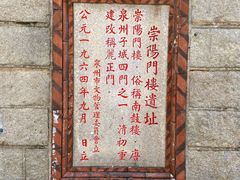 崇陽門樓遺址
崇陽門樓，俗稱南鼓樓，唐
泉州子城四門之一，清初重
建改稱麗正門。
泉州市文物管理委員會立
公元一九六四年九月 日立